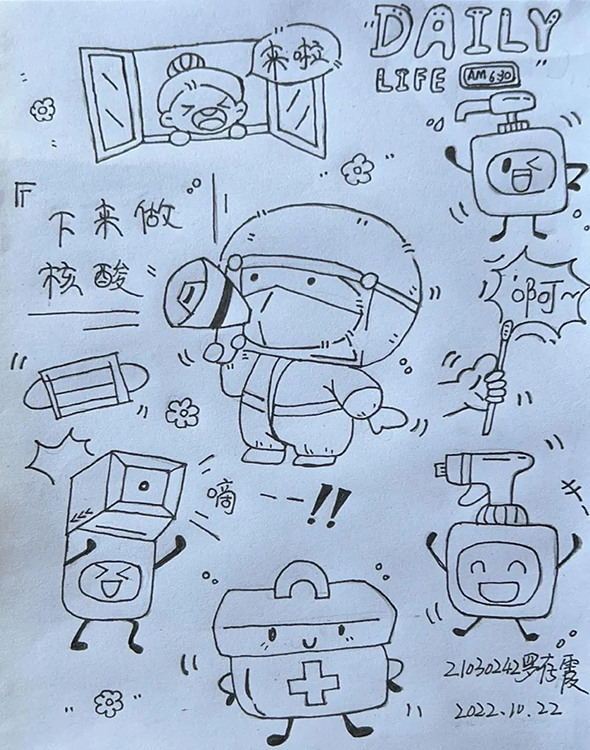 DAILY
LIFE AM 6:30
来啦
『下来做
核酸"
啊~
嘀
---!!
21030242罗存霞
2022.10.22